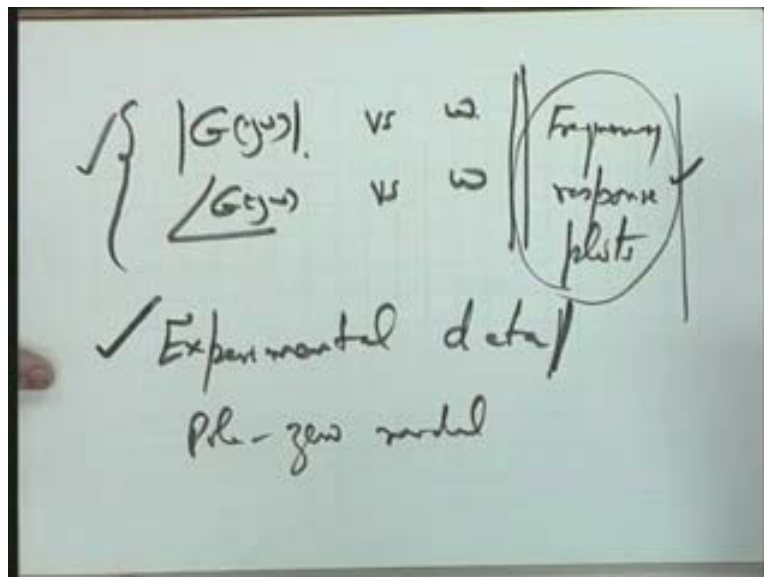 |G(jω)|. vs ω.
∠G(jω) vs ω
Frequency
response
plots
Experimental data
Pole-zero model